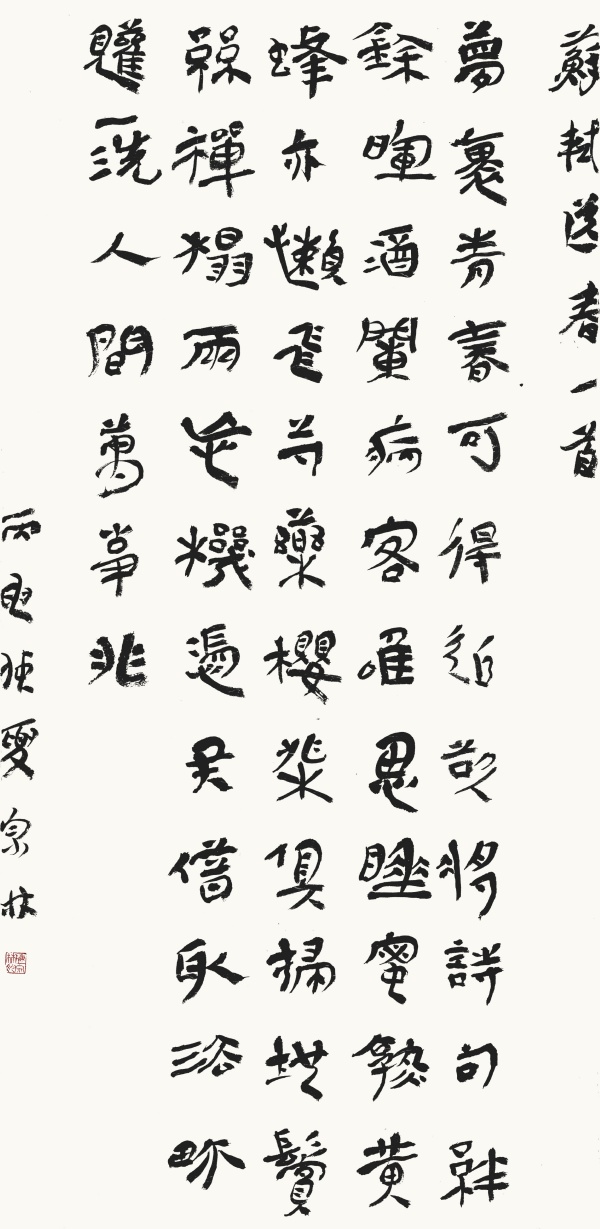 蘇軾送春一首
夢裏青春可得追欲將詩句絆
餘暉酒闌病客唯思睡蜜熟黃
蜂亦懶飛芍藥櫻桃俱掃地鬢
絲禪榻兩忘機憑君借取法界
觀一洗人間萬事非
丙夏林